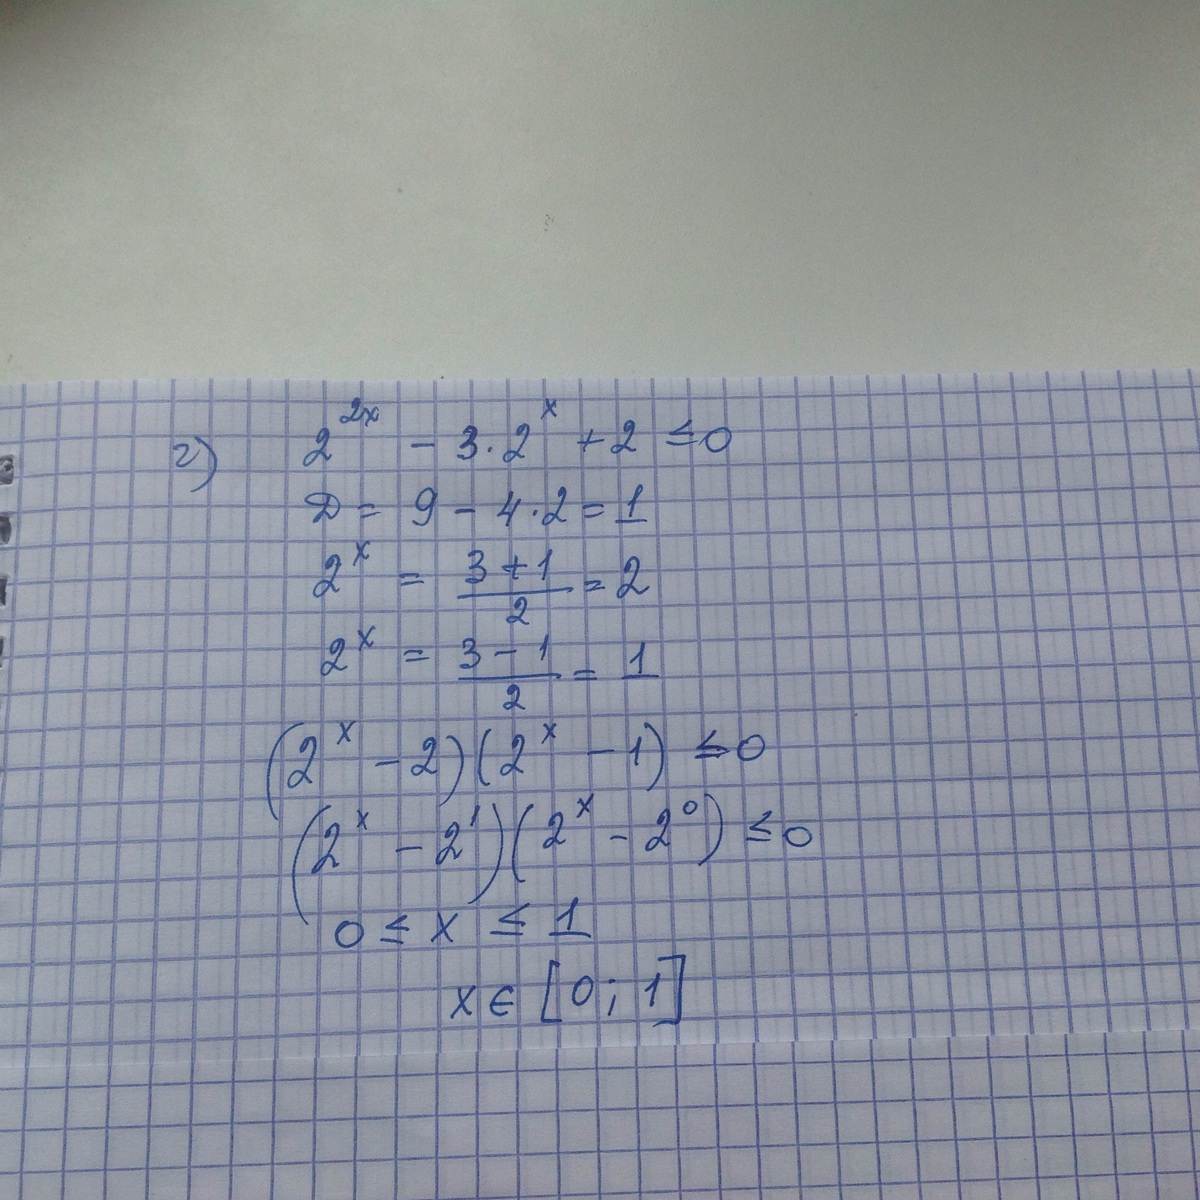 г) 2^{2x} - 3·2^x + 2 ≤ 0
D = 9 - 4·2 = 1
2^x = (3+1)/2 = 2
2^x = (3-1)/2 = 1
(2^x - 2)(2^x - 1) ≤ 0
(2^x - 2^1)(2^x - 2^0) ≤ 0
0 ≤ x ≤ 1
x ∈ [0; 1]